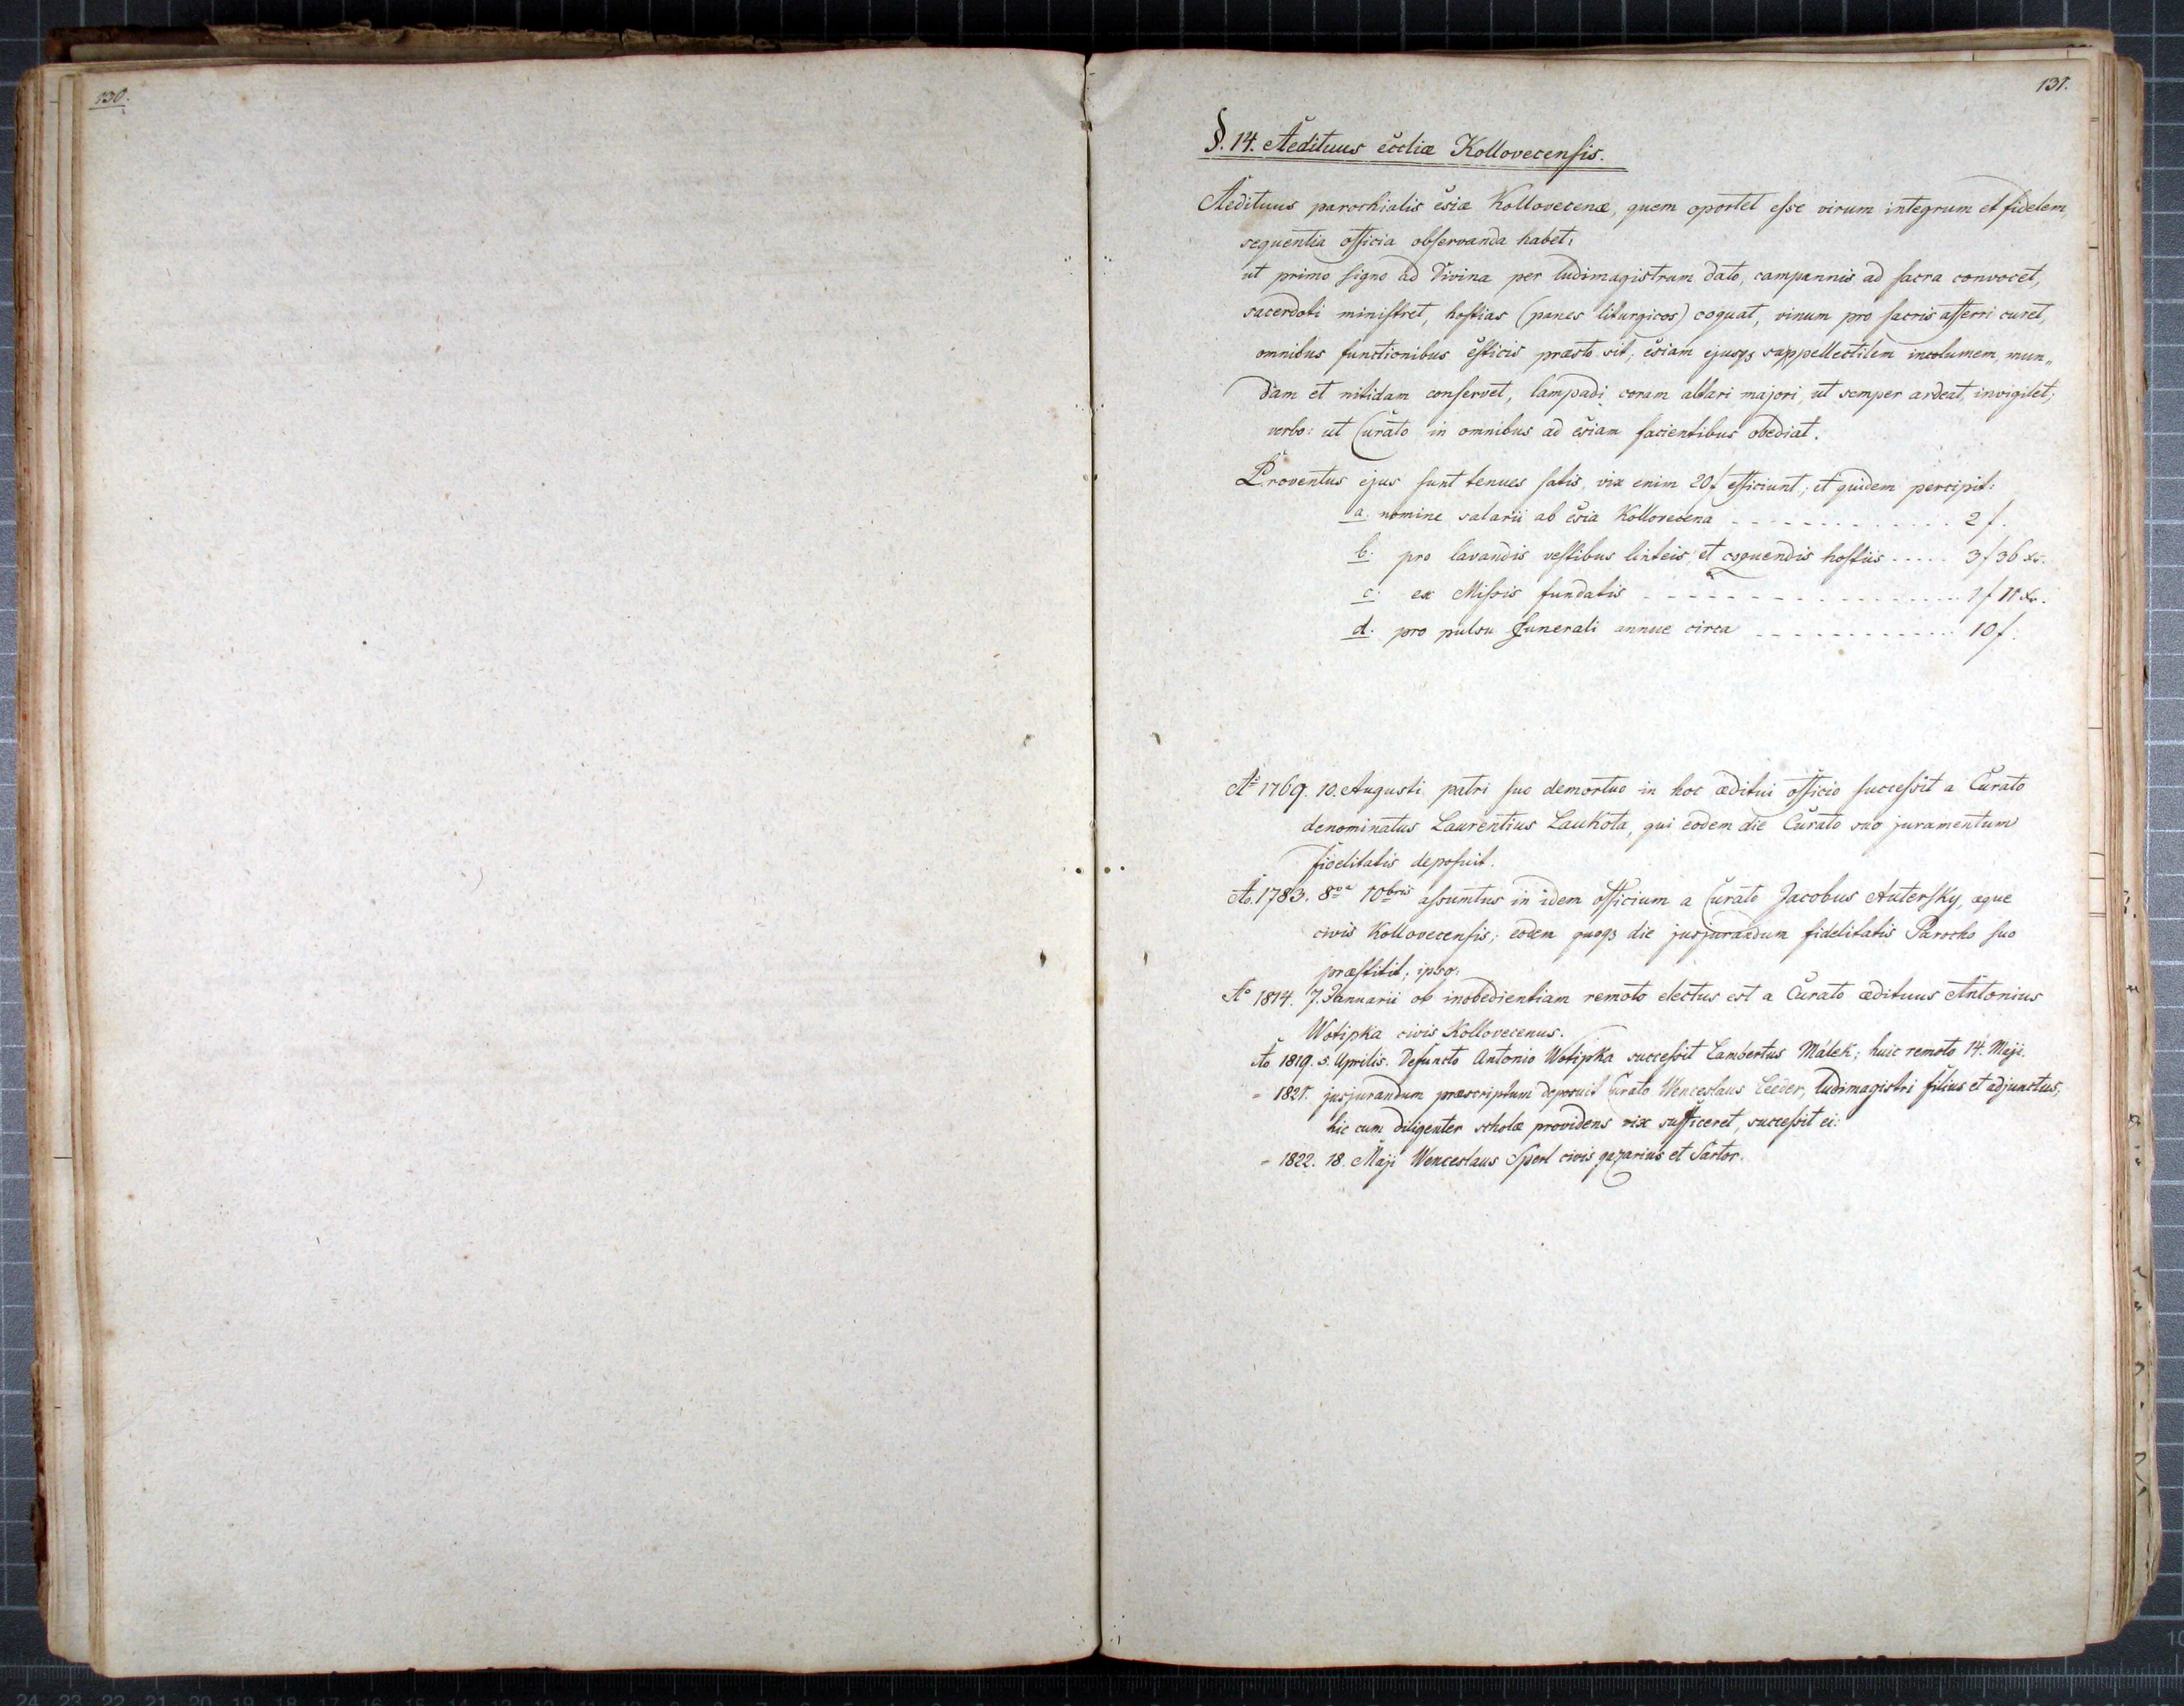 130.
131.
§. 14. Aedituus eccliæ Kollovecensis.
Aedituus parochialis ēsiæ Kollovecenæ, quem oportet esse virum integrum et fidelem,
sequentia officia observanda habet;
ut primo signo ad Divina per ludimagistrum dato, campannis ad sacra convocet,
sacerdoti ministret, hostias (panes liturgicos) coquat, vinum pro sacris afferri curet,
omnibus functionibus ēsticis præsto sit; ēsiam ejusqз suppellectilem incolumem, mun„
dam et nitidam conservet, lampadi coram altari majori, ut semper ardeat, invigilet;
verbo: ut Curato in omnibus ad ēsiam facientibus obediat.
Proventus ejus sunt tenues satis, vix enim 20f efficiunt; et quidem percipit:
a. nomine salarii ab ēsia Kollovecena - - - - - - - - - - - - 2 f.
b. pro lavandis vestibus linteis et coquendis hostiis - - - - - 3 f 36 xr.
c. ex Missis fundatis - - - - - - - - - - - - - - - - 1 f 11 xr.
d. pro pulsu funerali annue circa - - - - - - - - - - - - 10 f.
Aº 1769. 10. Augusti patri suo demortuo in hoc æditui officio successit a Curato
denominatus Laurentius Laukota, qui eodem die Curato suo juramentum
fidelitatis deposuit.
Ao. 1783. 8va 10bris assumtus in idem officium a Curato Jacobus Autersky, æque
civis Kollovecensis; eodem quoqз die jusjurandum fidelitatis Parocho suo
præstitit; ipso:
Aº 1814. 7. Januarii ob inobedientiam remoto electus est a Curato ædituus Antonius
Wotipka civis Kollovecenus.
Ao 1819. 5. Aprilis. Defuncto Antonio Wotipka successit Lambertus Málek; huic remoto 14. Maji.
- 1821. jusjurandum præscriptum deposuit Curato Wenceslaus Leeder, ludimagistri filius et adjunctus;
hic cum diligenter scholæ providens vix sufficeret, successit ei:
- 1822. 18. Maji Wenceslaus Sperl civis gazarius et Sartor.